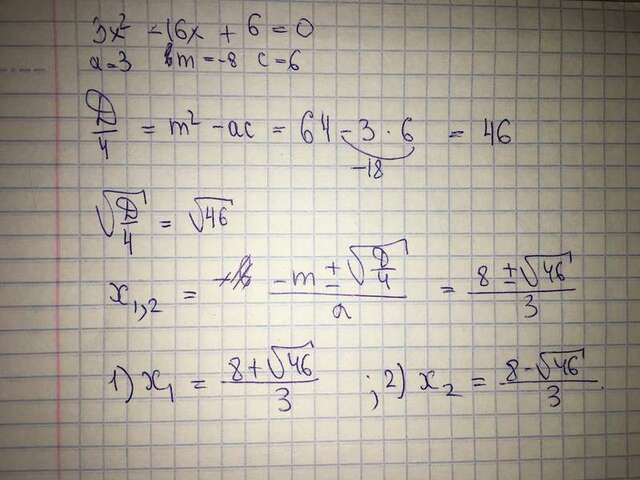 3x² - 16x + 6 = 0
a = 3 m = -8 c = 6
D/4 = m² - ac = 64 - 3 · 6 = 46
-18
√(D/4) = √46
x₁,₂ = (-m ± √(D/4))/a = (8 ± √46)/3
1) x₁ = (8 + √46)/3 ; 2) x₂ = (8 - √46)/3